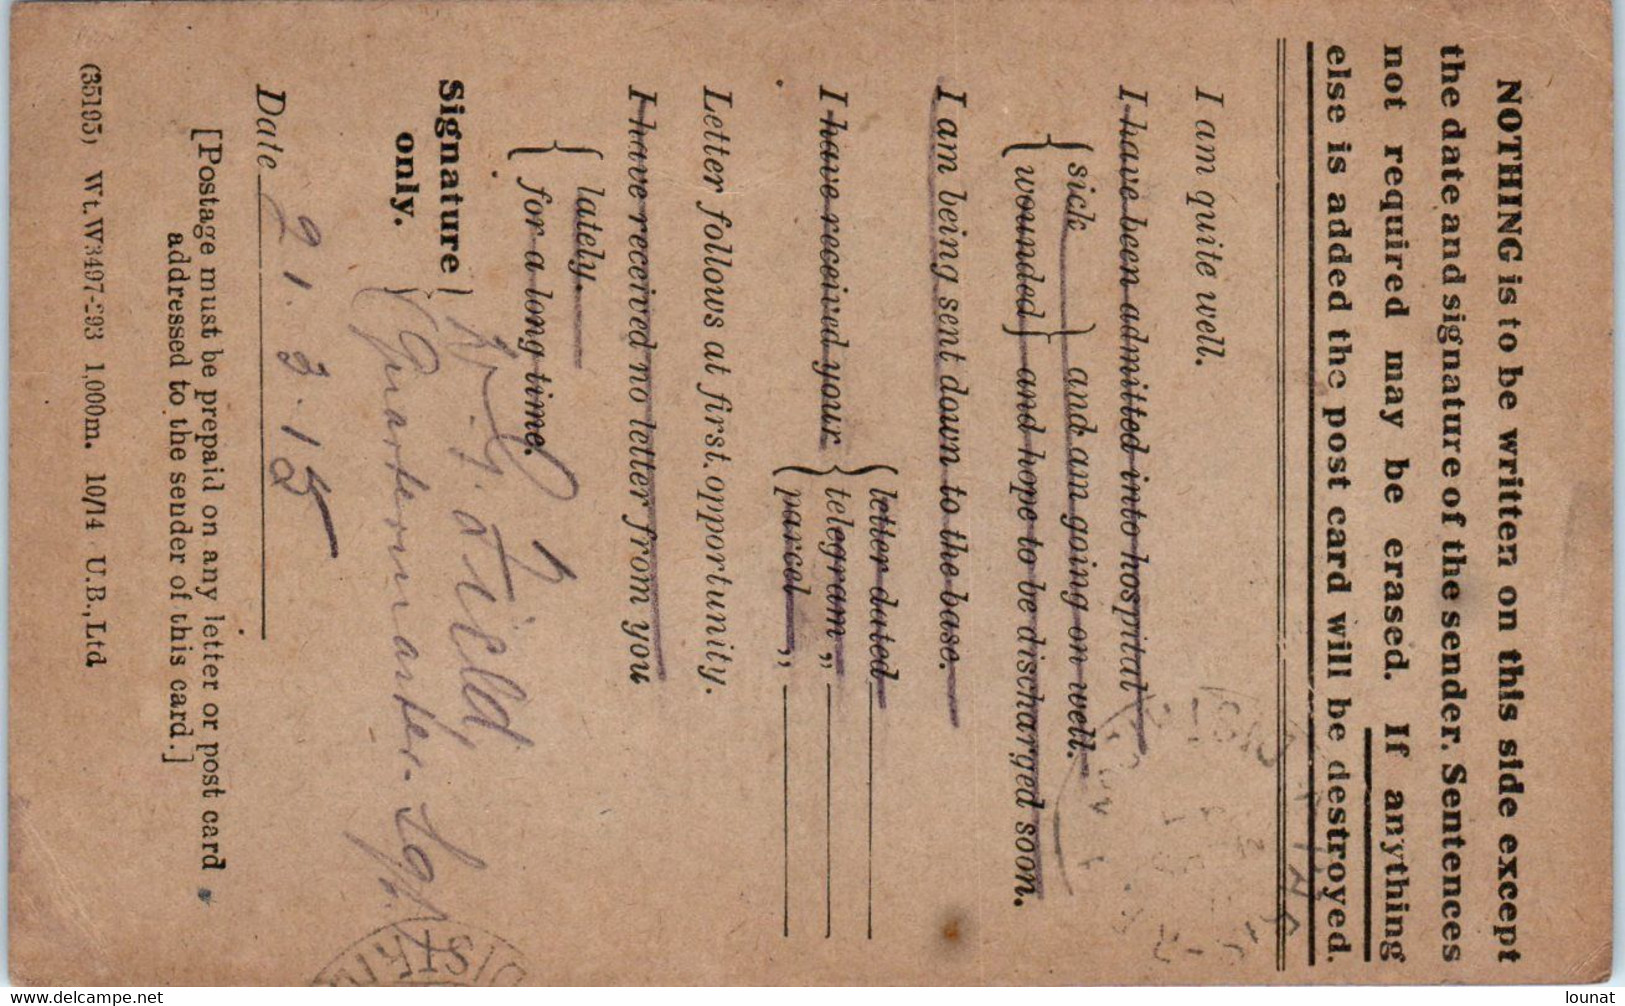 NOTHING is to be written on this side except
the date and signature of the sender. Sentences
not required may be erased. If anything
else is added the post card will be destroyed.
I am quite well.
I have been admitted into hospital
{ sick } and am going on well.
{ wounded } and hope to be discharged soon.
I am being sent down to the base.
I have received your { letter dated
telegram „
parcel „
Letter follows at first opportunity.
I have received no letter from you
{ lately.
for a long time.
Signature
only.
Field,
Quartermaster-Sgt
Date 21.3.15
[Postage must be prepaid on any letter or post card
addressed to the sender of this card.]
(35195) Wt.W3497-293 1,000m. 10/14 U.B.,Ltd
delcampe.net
lounat